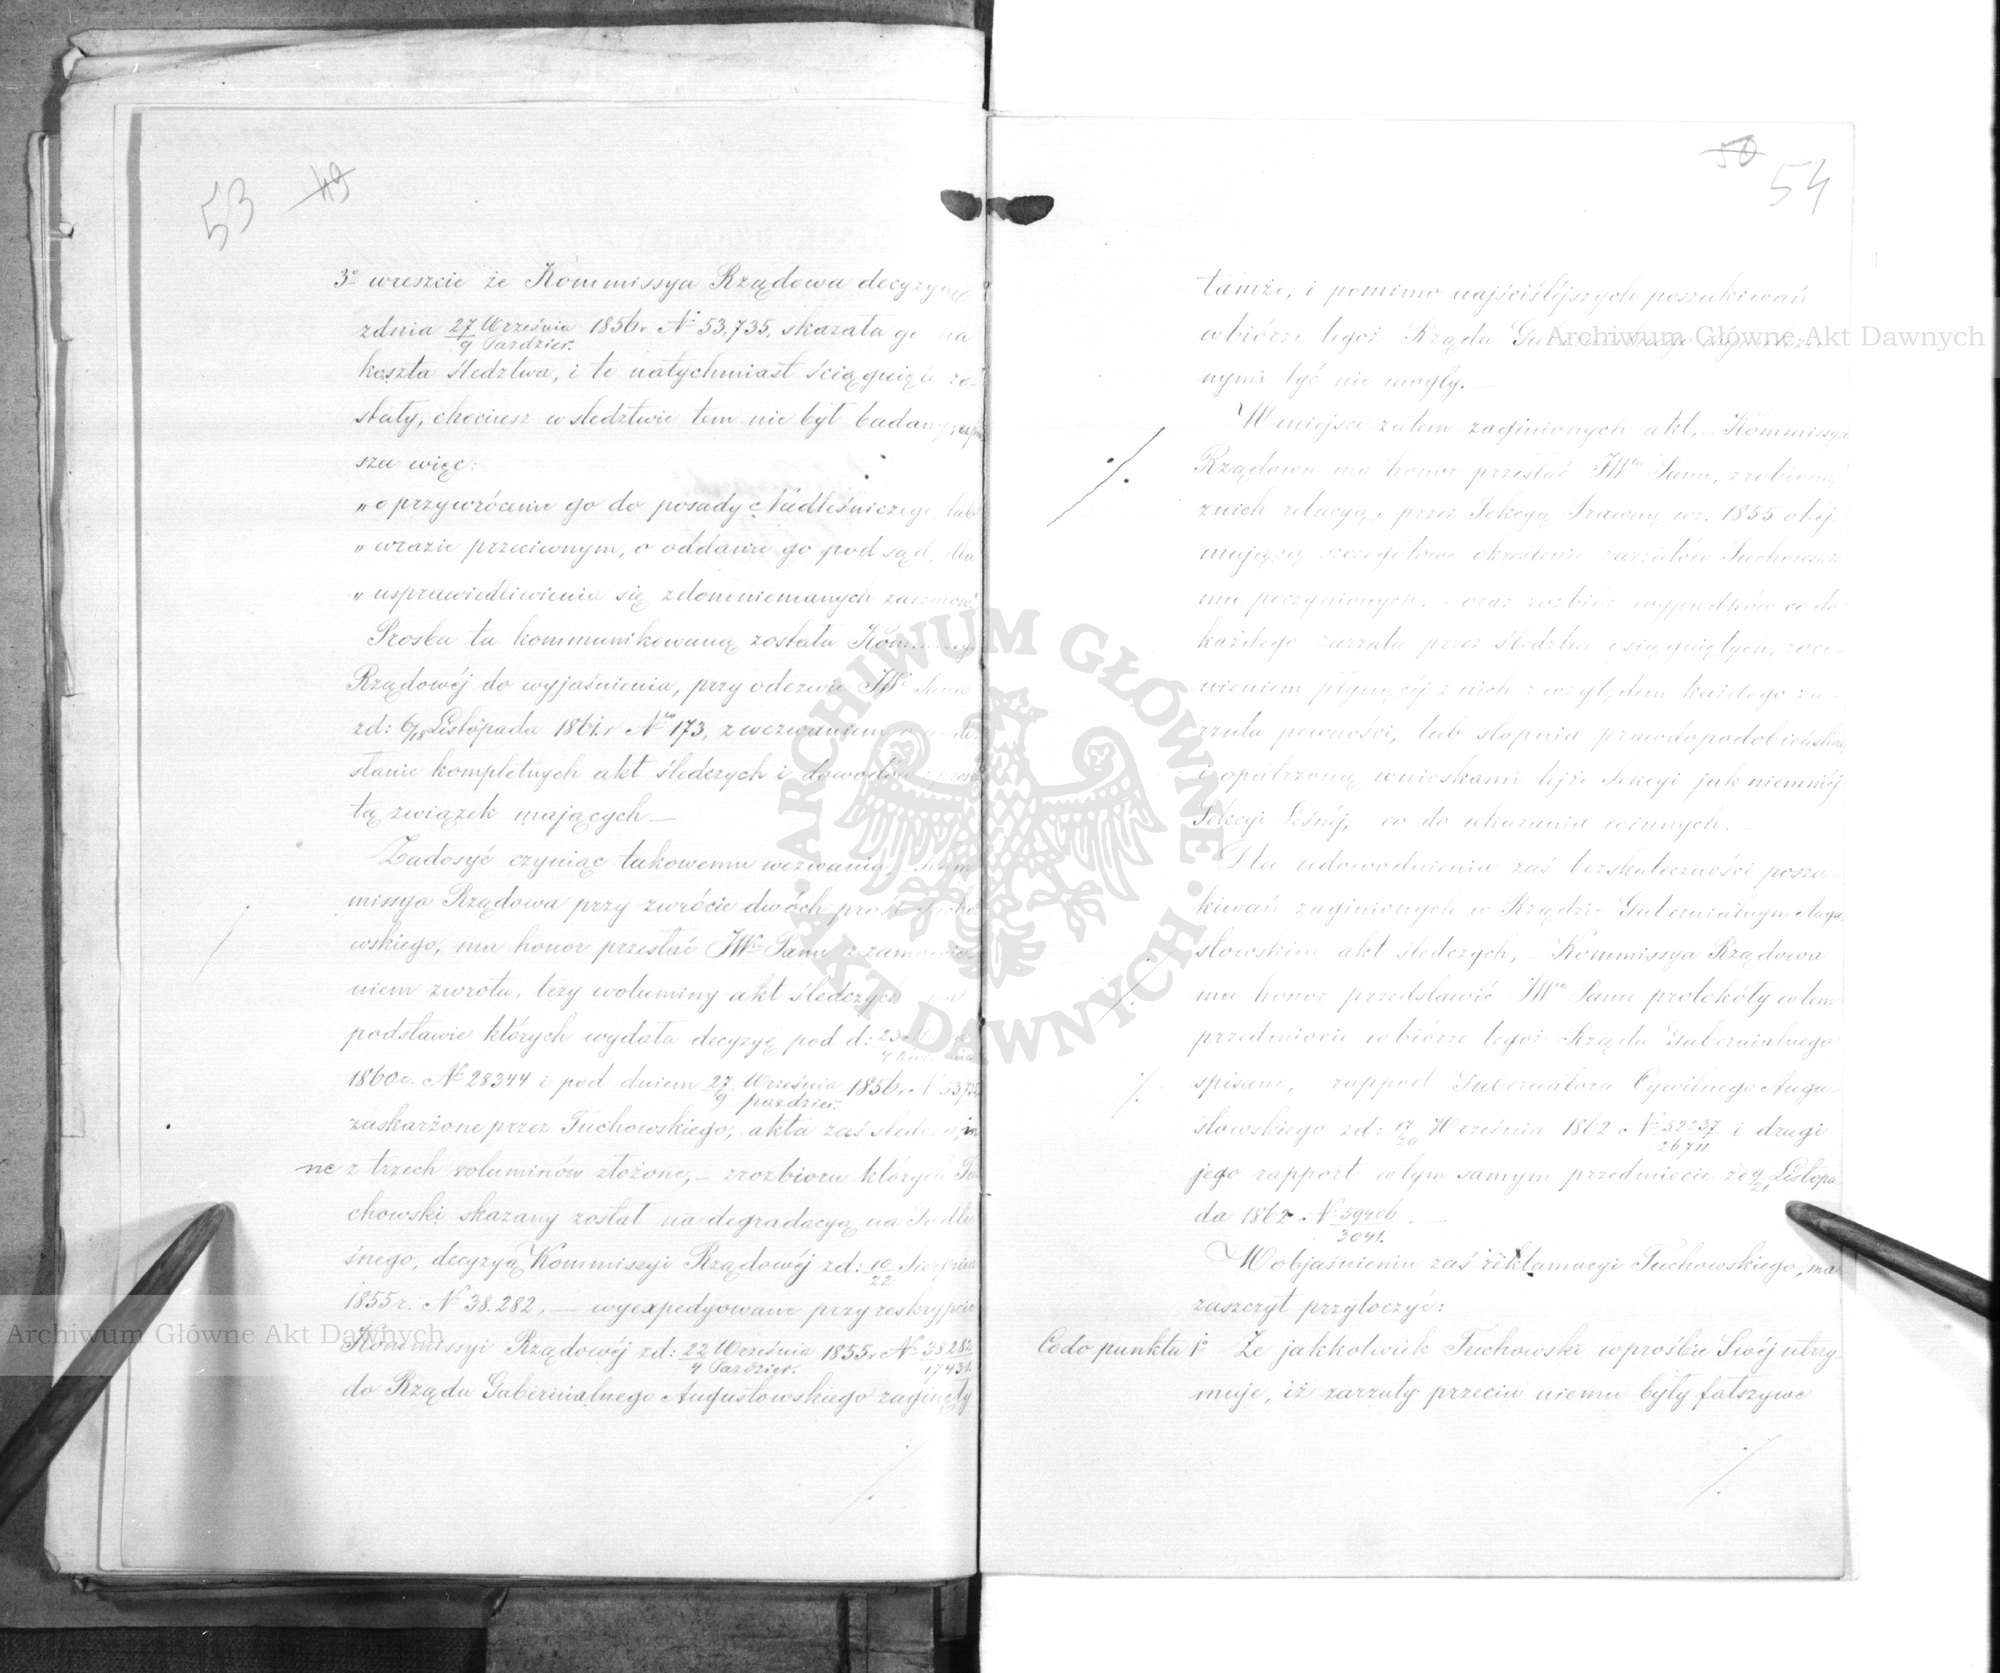 53 49
3º wreszcie że Kommissya Rządowa decyzyą
zdnia 27 Września/9 Paździer. 1856r № 53,735, skazała go na
koszta śledztwa, i te natychmiast ściągnięte zo-
stały, chociesz w śledztwie tem nie był badany;
sza więc:
„o przywrócenie go do posady Nadleśniczego lub
„wrazie przeciwnym, o oddanie go pod sąd, dla
„usprawiedliwienia się zdomniemanych zarzutów.
Prośba ta kommunikowaną została Kommissyi
Rządowéj do wyjaśnienia, przy odezwie JWº Pana
zd: 6/18 Listopada 1861.r Nº 173, z wezwaniem o
słanie kompletnych akt śledczych i dowodów z proźb
tą związek mających —
Zadosyć czyniąc takowemu wezwaniu, Kom
missya Rządowa przy zwrócie dwóch próśb Tucho
wskiego, ma honor przesłać JWmu Panu z zamówie-
niem zwrotu, trzy woluminy akt śledczych na
podstawie których wydała decyzyę pod d: 23
1860r. № 28344 i pod dniem 27 Września/9 paździer. 1856r № 53735
zaskarżone przez Tuchowskiego, akta zaś śledcze, in
ne z trzech voluminów złożone, – zrozbioru których Tu
chowski skazany został na degradacyą na Podle
śnego, decyzyą Kommissyi Rządowéj zd: 10/22 Sierpnia
1855r. № 38.282, — wyexpedyowane przy reskrypcie
Kommissyi Rządowéj zd: 22 Września/4 Paździer. 1855r № 38282/17431.
do Rządu Gubernialnego Augustowskiego zaginęły
50 54
tamże, i pomimo najściślejszych poszukiwań
w biórze tegoż Rządu
nymi być nie mogły. —
W miejsce zatem zaginionych akt, – Kommissya
Rządowa ma honor przesłać JWmu Panu, zrobioną
z nich relacyą, przez Sekcyą Prawną w r. 1855 obej-
mującą szczegółowe określenie zarzutów Tuchowskie
mu poczynionych, – oraz rozbiór wypadków co do
każdego zarzutu przez śledztwo osiągniętych, z oce-
nieniem płynącéj z nich względem każdego za-
rzutu pewności, lub stopnia prawdopodobieństwa,
i opatrzoną wnioskami tejże Sekcyi jak niemniéj
Sekcyi Leśnéj, co do ukarania winnych. —
Dla udowodnienia zaś bezskuteczności poszu-
kiwań zaginionych w Rządzie Gubernialnym Augu-
stowskim akt śledczych, – Kommissya Rządowa
ma honor przedstawić JWmu Panu protokóły w tem
przedmiocie w biórze tegoż Rządu Gubernialnego
spisane, rapport Gubernatora Cywilnego Augu-
stowskiego zd: 17/29 Września 1862 № 52237/26711 i drugi
jego rapport w tym samym przedmiocie zd 9/21 Listopa
da 1862 № 59406/3041. —
W objaśnieniu zaś reklamacyi Tuchowskiego, ma
zaszczyt przytoczyć:
Co do punktu 1º Że jakkolwiek Tuchowski w prośbie Swéj utrzy-
muje, iż zarzuty przeciw niemu były fałszywe
Archiwum Główne Akt Dawnych
Archiwum Główne Akt Dawnych
ARCHIWUM GŁÓWNE AKT DAWNYCH